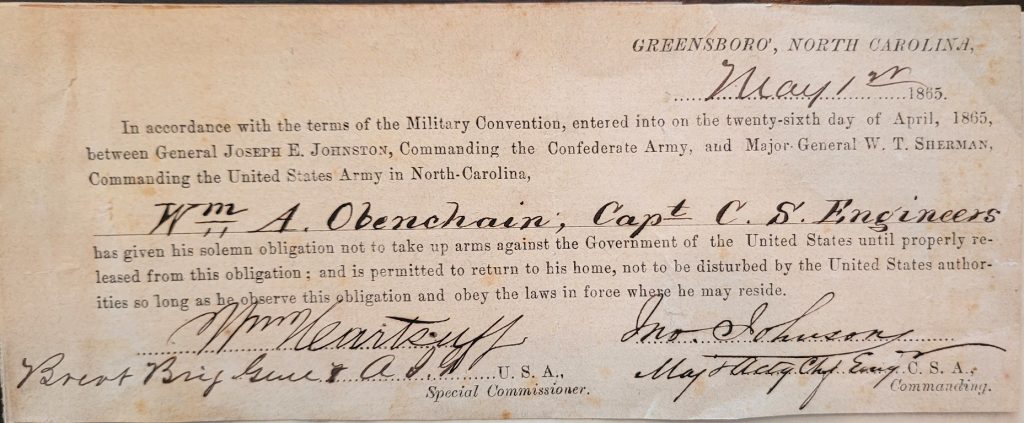 GREENSBORO', NORTH CAROLINA,
May 1st 1865.
In accordance with the terms of the Military Convention, entered into on the twenty-sixth day of April, 1865,
between General JOSEPH E. JOHNSTON, Commanding the Confederate Army, and Major-General W. T. SHERMAN,
Commanding the United States Army in North-Carolina,
Wm A. Obenchain, Capt C. S. Engineers
has given his solemn obligation not to take up arms against the Government of the United States until properly re-
leased from this obligation; and is permitted to return to his home, not to be disturbed by the United States author-
ities so long as he observe this obligation and obey the laws in force where he may reside.
Wm Hartsuff
Jno. Johnson
Brevt Brig Genl & A. I. G. U. S. A.,
Maj & Actg Chf Eng. C. S. A.,
Special Commissioner.
Commanding.